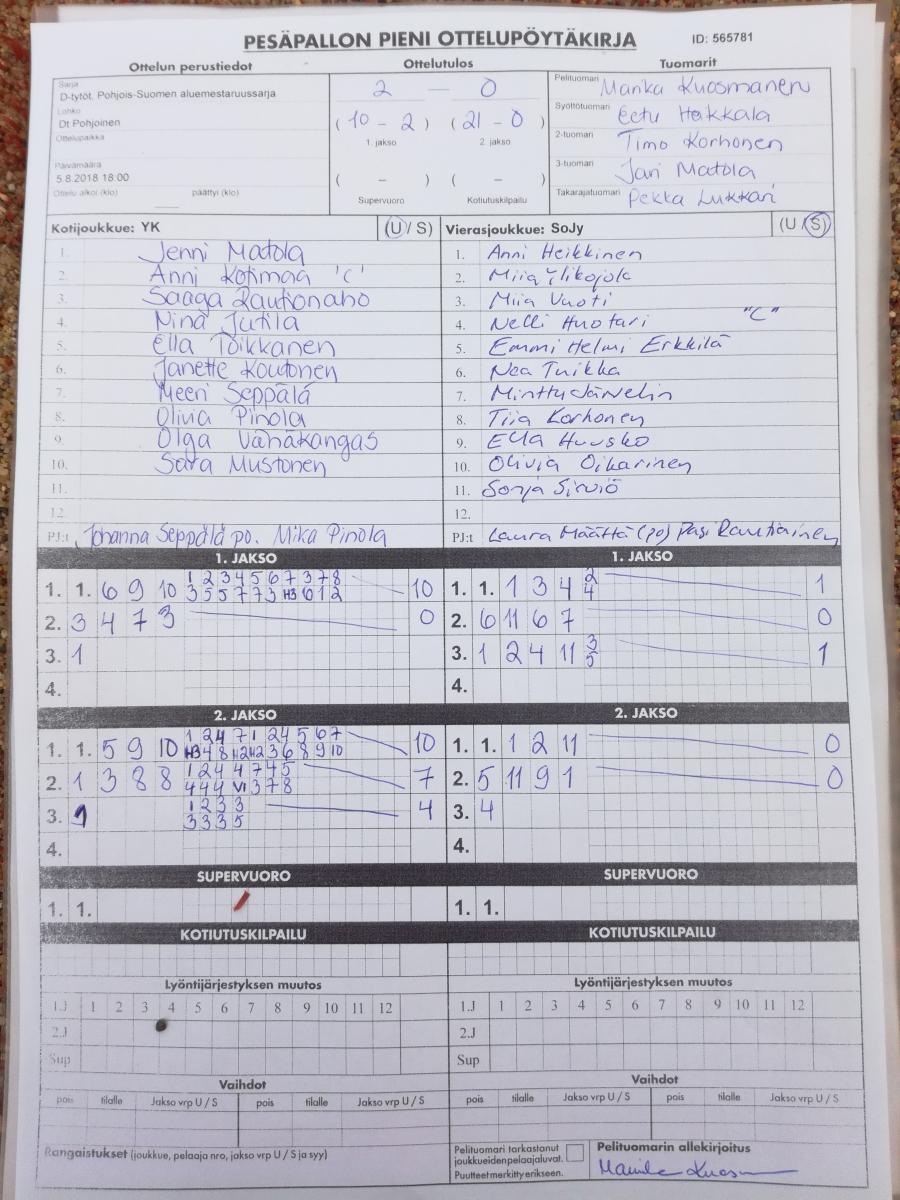 PESÄPALLON PIENI OTTELUPÖYTÄKIRJA ID: 565781
Ottelun perustiedot Ottelutulos Tuomarit
Sarja
D-tytöt, Pohjois-Suomen aluemestaruussarja
Lohko
Dt Pohjoinen
Ottelupaikka
Päivämäärä
5.8.2018 18:00
Ottelu alkoi (klo) päättyi (klo)
2 — 0
(10 - 2) (21 - 0)
1. jakso 2. jakso
( - ) ( - )
Supervuoro Kotiutuskilpailu
Pelituomari Marika Kuosmanen
Syöttötuomari Eetu Heikkala
2-tuomari Timo Korhonen
3-tuomari Jari Matola
Takarajatuomari Pekka Lukkari
Kotijoukkue: YK (U / S)
1. Jenni Matola
2. Anni Kotimaa "C"
3. Saaga Rautionaho
4. Nina Jutila
5. Ella Toikkanen
6. Janette Koutonen
7. Meeri Seppälä
8. Olivia Pinola
9. Olga Vähäkangas
10. Sara Mustonen
11.
12.
PJ:t Johanna Seppälä po. Mika Pinola
Vierasjoukkue: SoJy (U / S)
1. Anni Heikkinen
2. Miia Ylikojola
3. Miia Vuoti
4. Nelli Huotari "C"
5. Emmi Helmi Erkkilä
6. Nea Tuikka
7. Minttu Järvelin
8. Tiia Korhonen
9. Ella Huusko
10. Olivia Oikarinen
11. Sonja Sirviö
12.
PJ:t Laura Määttä (po) Pasi Rautiainen
1. JAKSO
1. 1. 6 9 10 1 2 3 4 5 6 7 3 7 8 10
3 5 5 7 7 3 H3 6 1 2
2. 3 4 7 3 0
3. 1
4.
1. JAKSO
1. 1. 1 3 4 2 1
4
2. 6 11 6 7 0
3. 1 2 4 11 3 1
5
4.
2. JAKSO
1. 1. 5 9 10 1 2 4 7 1 2 4 5 6 7 10
H3 4 8 H2 H2 3 6 8 9 10
2. 1 3 8 8 1 2 4 4 7 4 5 7
4 4 4 VI 3 7 8
3. 1 1 2 3 3 4
3 3 3 5
4.
2. JAKSO
1. 1. 1 2 11 0
2. 5 11 9 1 0
3. 4
4.
SUPERVUORO SUPERVUORO
1. 1. 1. 1.
KOTIUTUSKILPAILU KOTIUTUSKILPAILU
Lyöntijärjestyksen muutos Lyöntijärjestyksen muutos
1.J 1 2 3 4 5 6 7 8 9 10 11 12 1.J 1 2 3 4 5 6 7 8 9 10 11 12
2.J 2.J
Sup Sup
Vaihdot Vaihdot
pois tilalle Jakso vrp U / S pois tilalle Jakso vrp U / S pois tilalle Jakso vrp U / S pois tilalle Jakso vrp U / S
Rangaistukset (joukkue, pelaaja nro, jakso vrp U / S ja syy)
Pelituomari tarkastanut
joukkueiden pelaajaluvat.
Puutteet merkitty erikseen.
Pelituomarin allekirjoitus